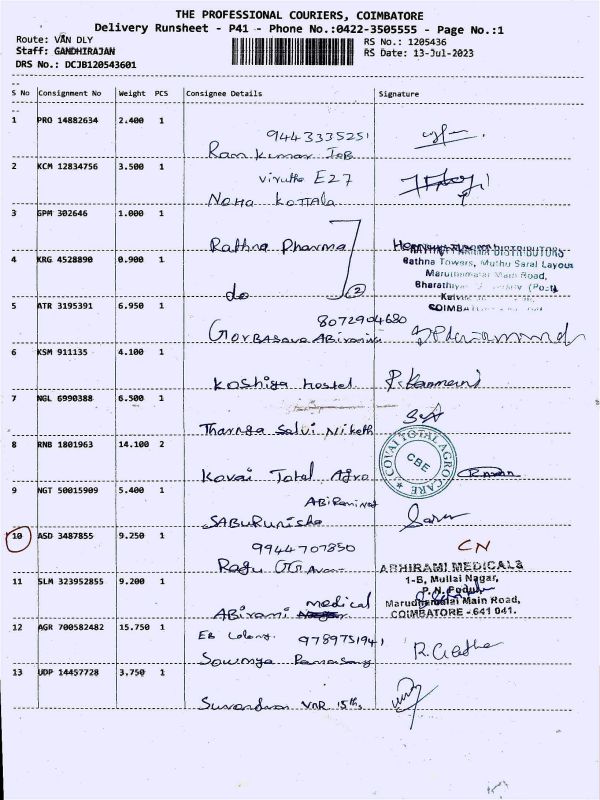 THE PROFESSIONAL COURIERS, COIMBATORE
Delivery Runsheet - P41 - Phone No.:0422-3505555 - Page No.:1
Route: VAN DLY
RS No.: 1205436
Staff: GANDHIRAJAN
RS Date: 13-Jul-2023
DRS No.: DCJB120543601
S No Consignment No Weight PCS Consignee Details Signature
1 PRO 14882634 2.400 1
9443335251
Ram Kumar IOB
2 KCM 12834756 3.500 1
E27
Noha Kottala
3 GPM 302646 1.000 1
Rathna Pharma
4 KRG 4528890 0.900 1
do 2
DISTRIBUTORS
Rathna Towers, Muthu Saral Layout
Marudhamalai Main Road,
(Post)
5 ATR 3195391 6.950 1
8072904680
6 KSM 911135 4.100 1
Koshiga hostel
7 NGL 6990388 6.500 1
Salvi Niketh
8 RNB 1801963 14.100 2
Kovai Total Agro
COVAI TOTAL AGRO CARE
CBE
9 NGT 50015909 5.400 1
10 ASD 3487855 9.250 1
9944707850
CN
Ragu
11 SLM 323952855 9.200 1
ABirami medical
ABHIRAMI MEDICALS
1-B, Mullai Nagar,
P. N. Pudur,
Marudhamalai Main Road,
COIMBATORE - 641 041.
12 AGR 700582482 15.750 1
EB Colony 9789751941
Sowmya Ramasamy
R. Geetha
13 UDP 14457728 3.750 1
VNR 15th